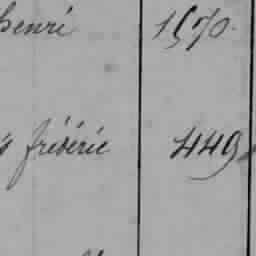 henri 1570.
frédéric 449